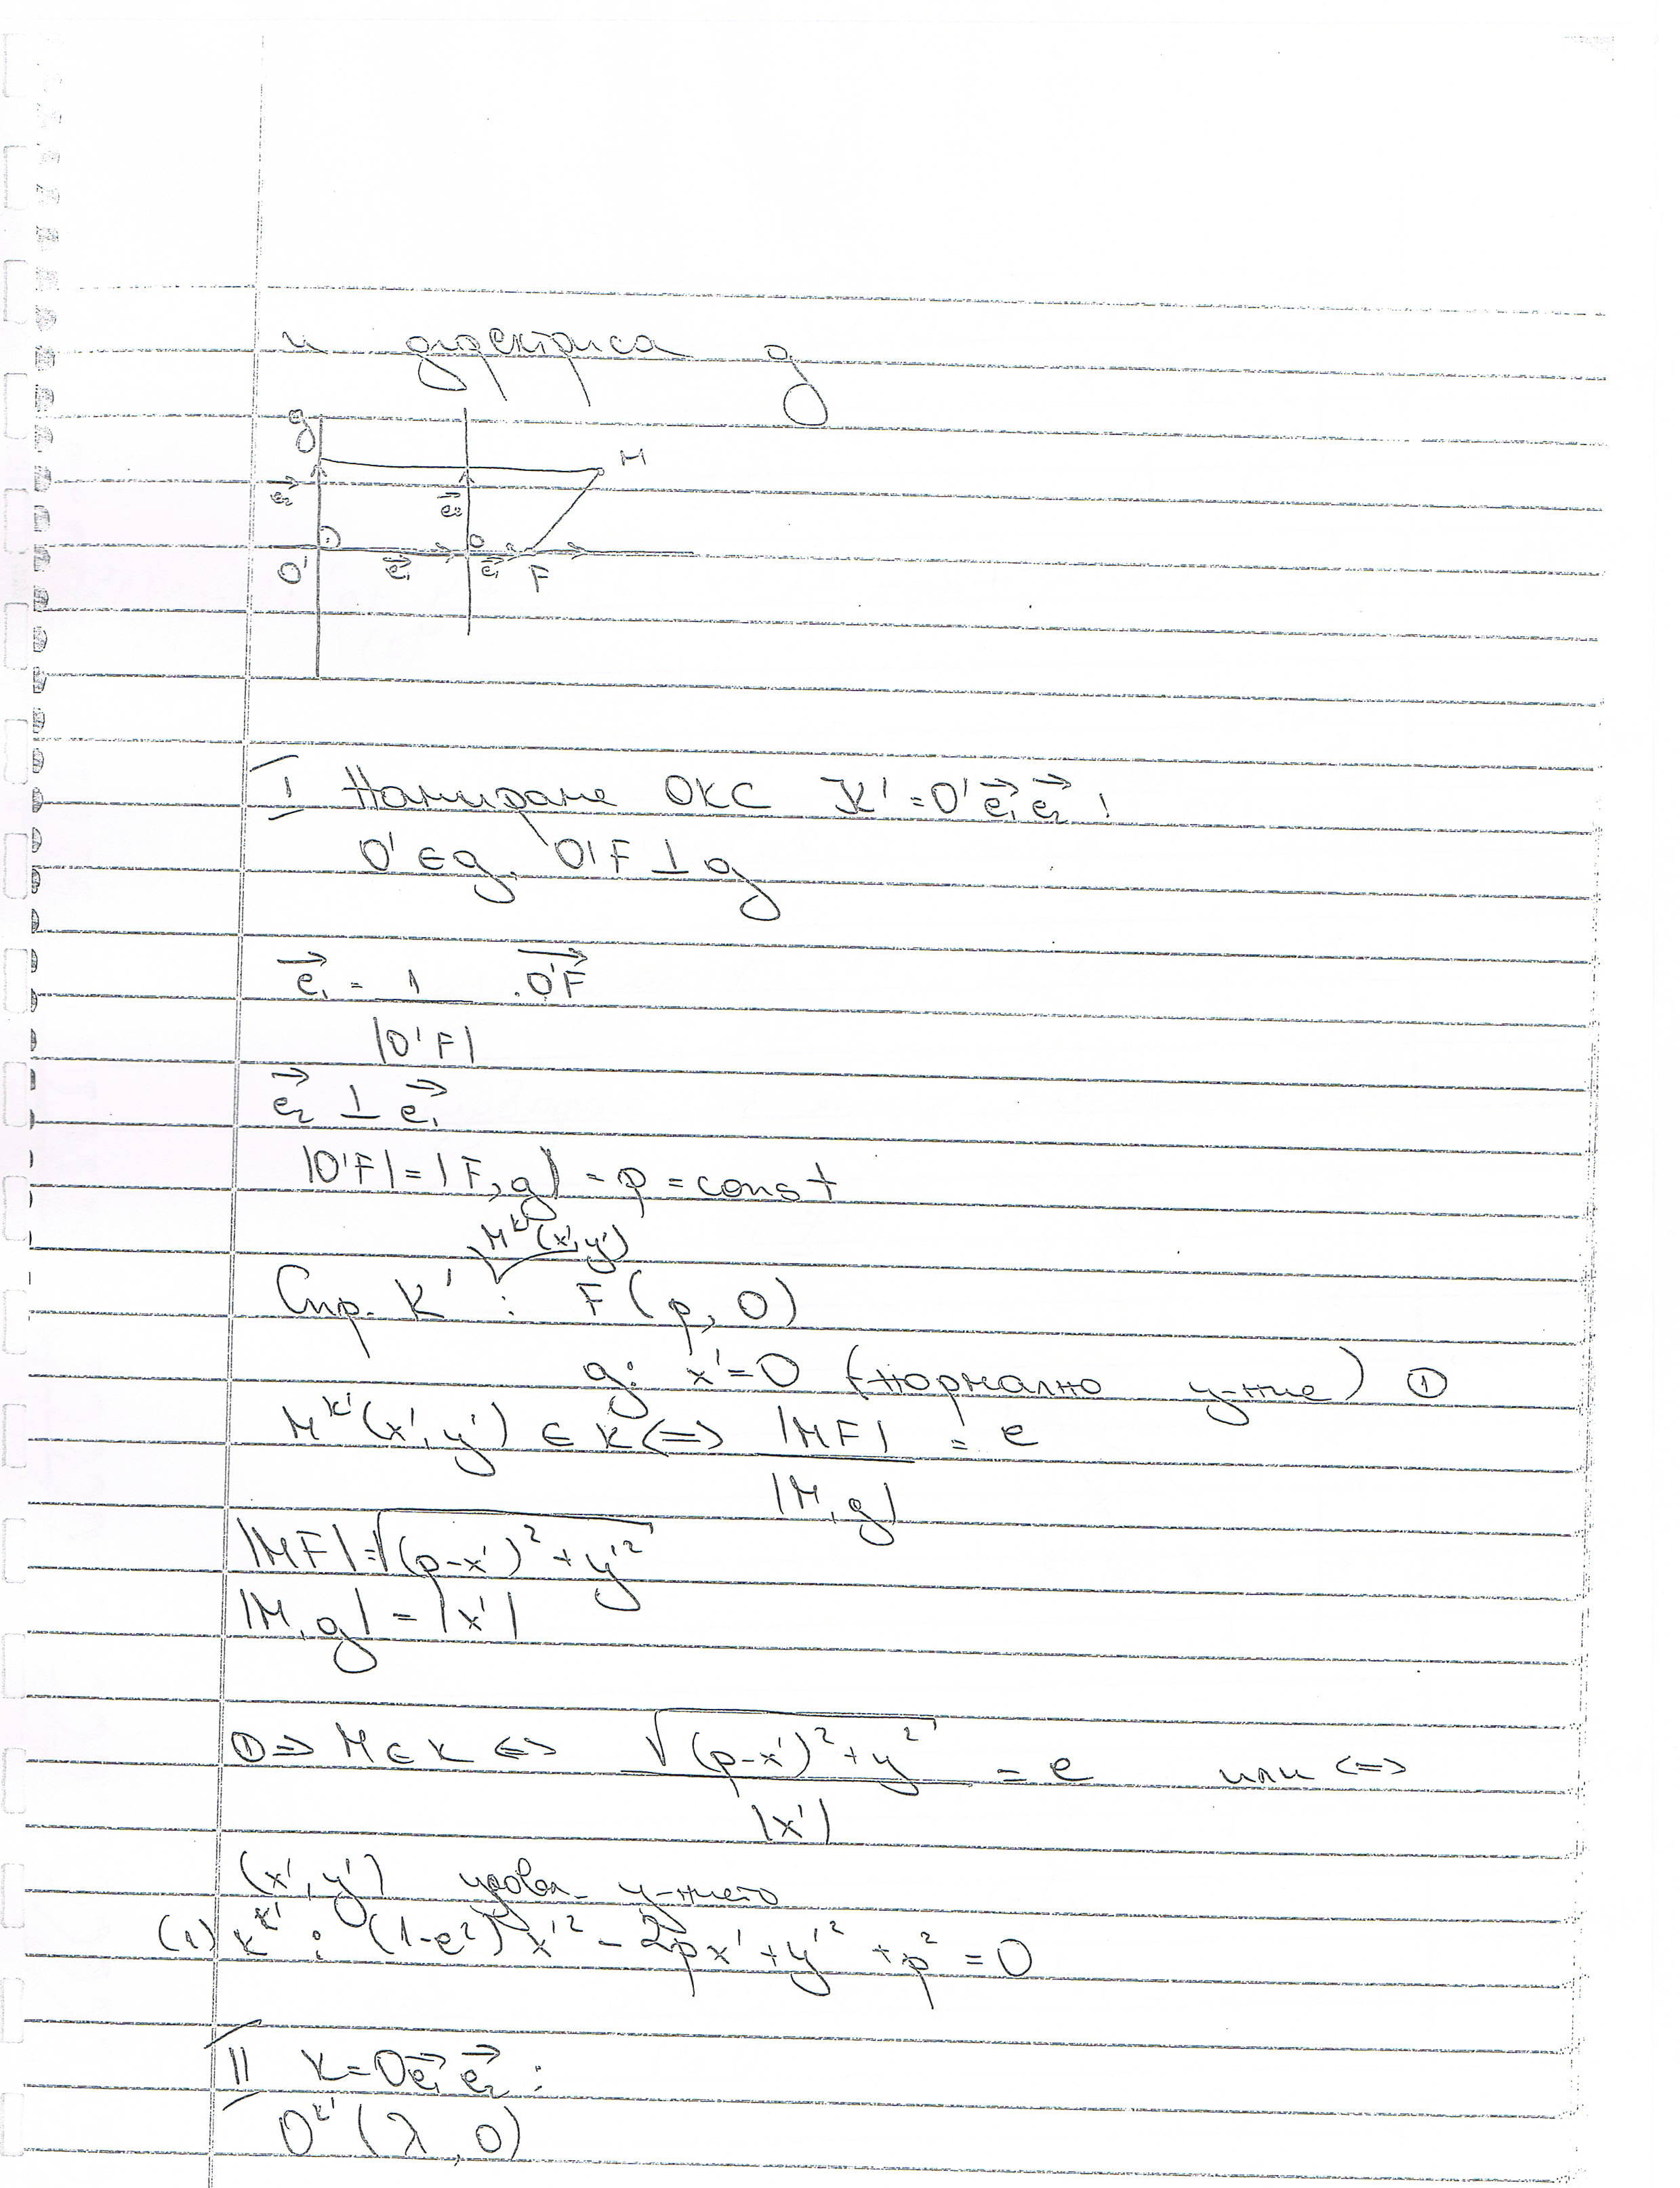 и директриса g
g
M
e₂
e₂
O
O' e₁ e₁ F
I Намираме ОКС K' = O'e₁e₂ :
O' ∈ g, O'F ⊥ g
e₁ = 1 . O'F
|O'F|
e₂ ⊥ e₁
|O'F| = |F, g| = p = const
M^K'(x', y')
Спр. K' : F(p, 0)
g: x' = 0 (нормално у-ние) ①
M^K'(x', y') ∈ k <=> |MF| = e
|M, g|
|MF| = √(p-x')² + y'²
|M, g| = |x'|
① => M ∈ k <=> √(p-x')² + y² = e или <=>
|x'|
(x', y') удовл. у-нието
(1) k^K' : (1-e²) x'² - 2px' + y'² + p² = 0
II K = Oe₁e₂ :
O^K'(λ, 0)